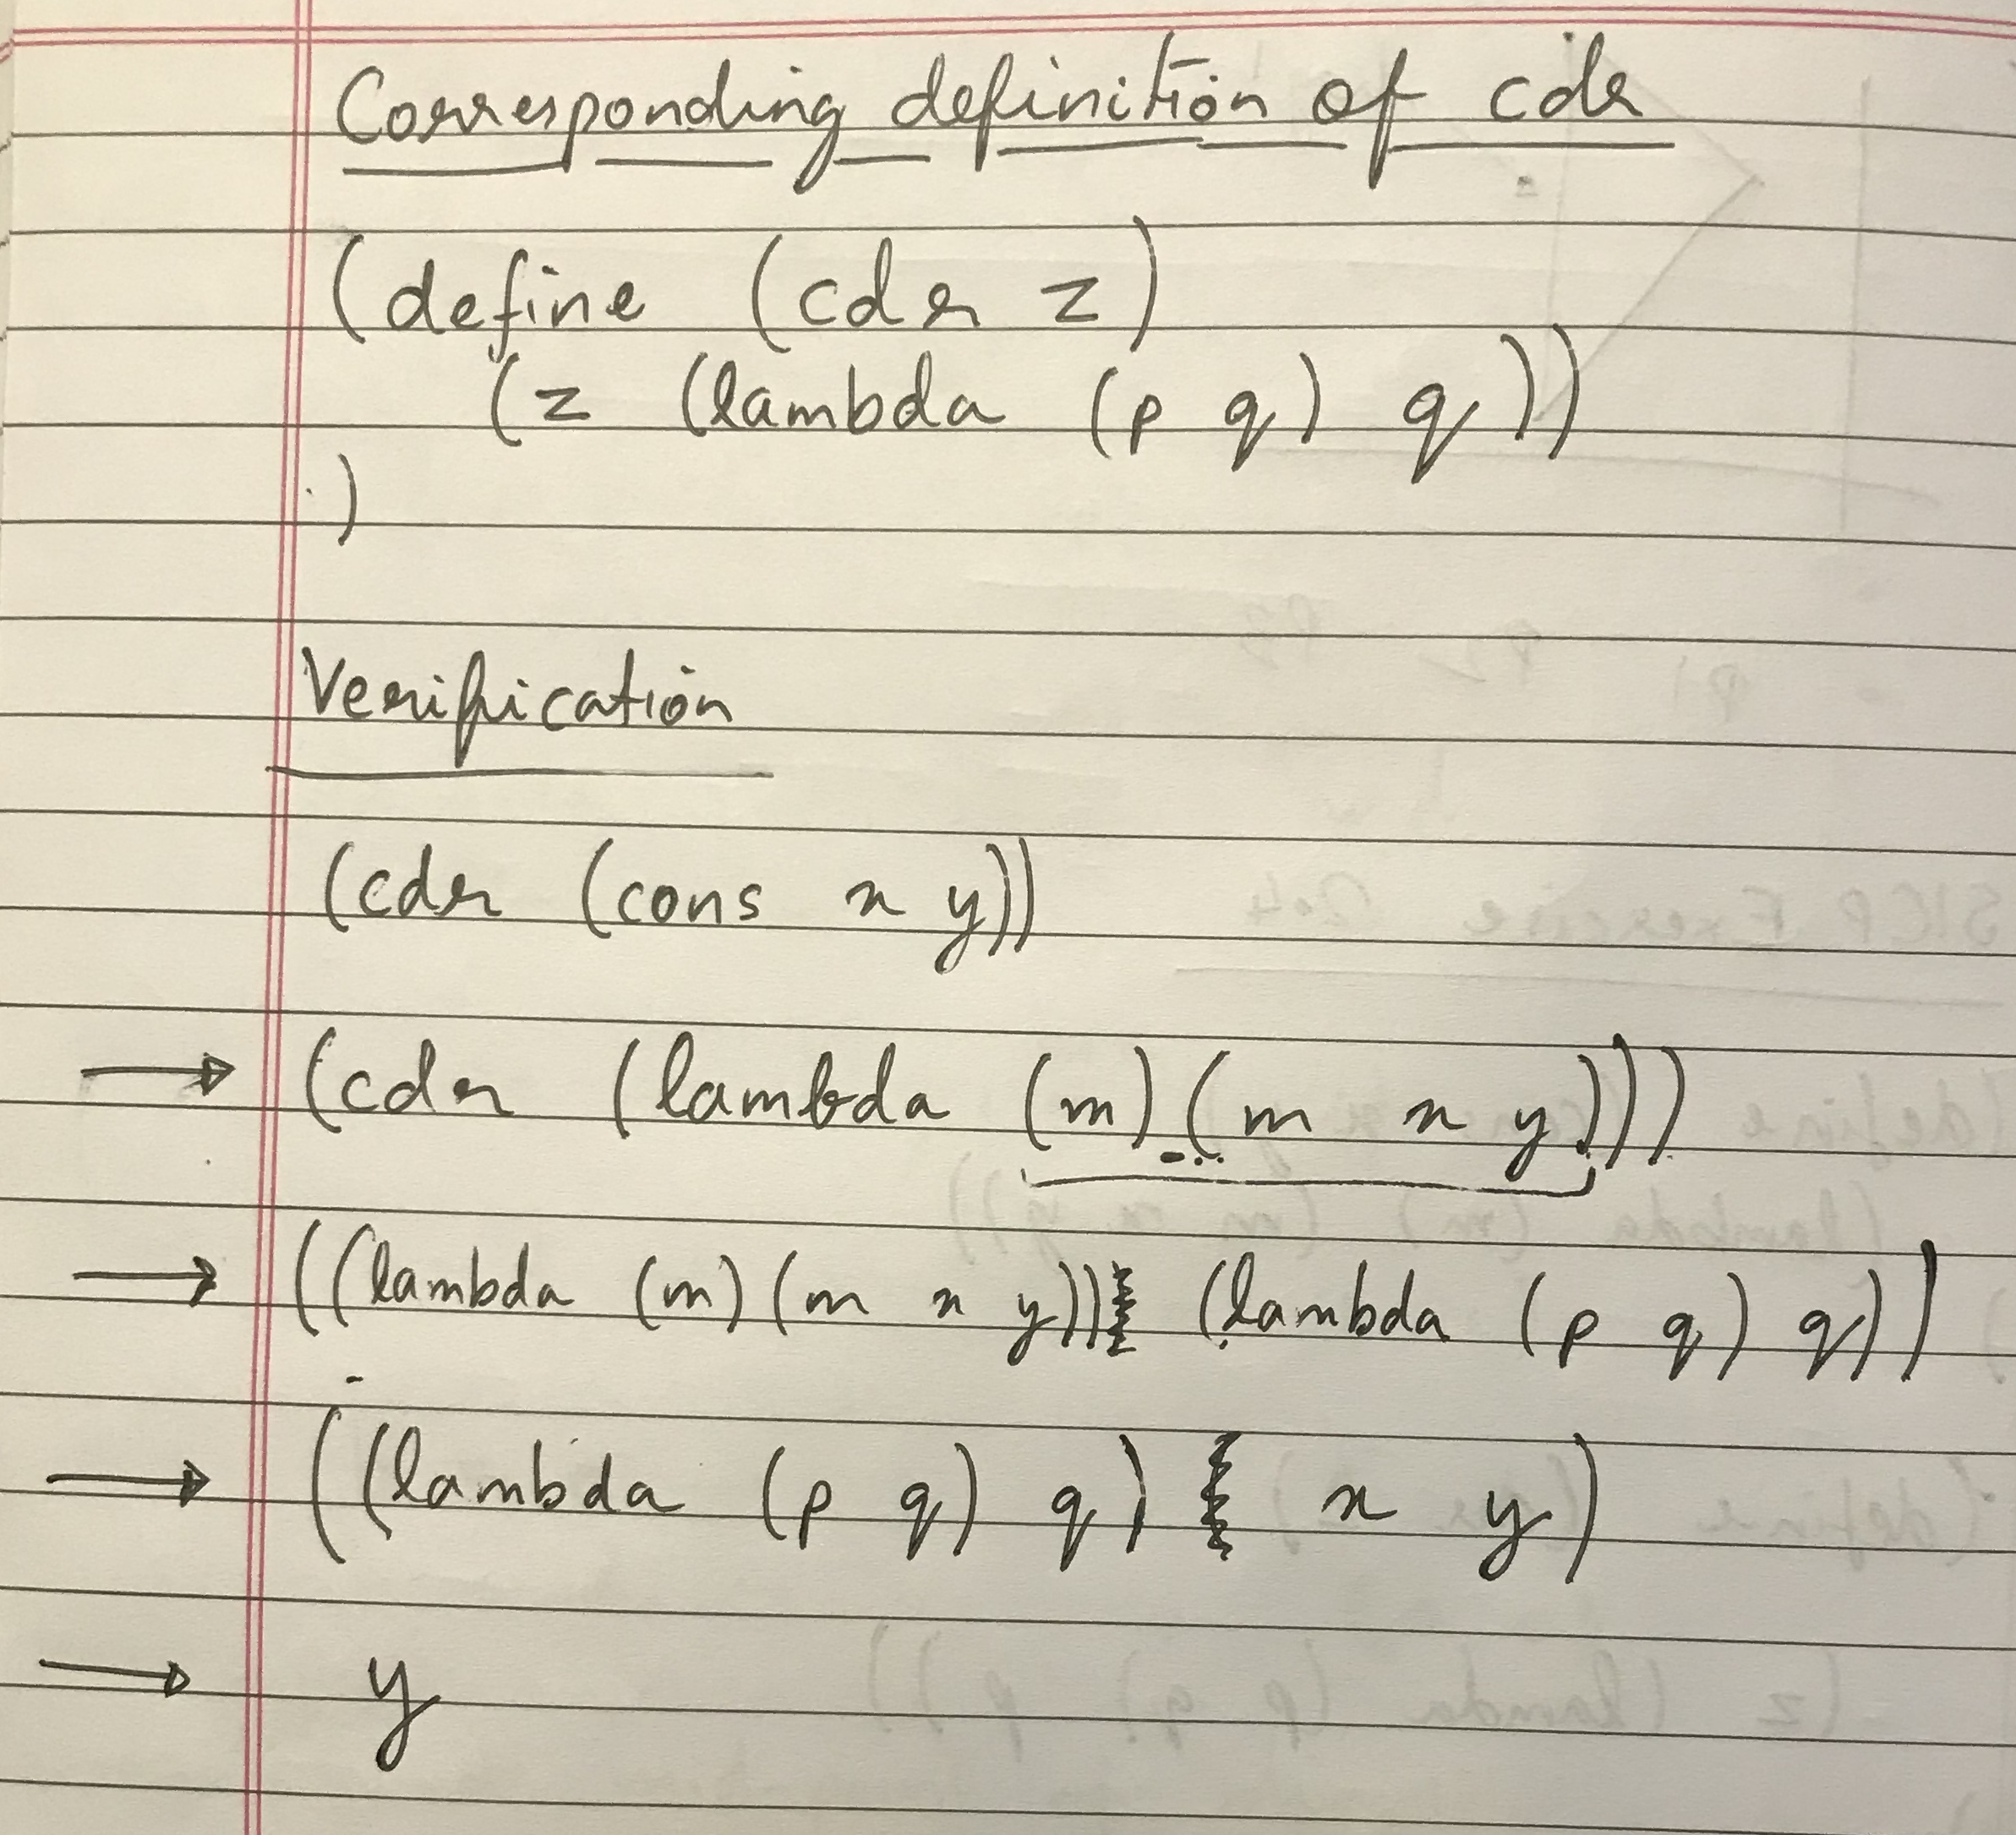 Corresponding definition of cdr
(define (cdr z)
(z (lambda (p q) q))
)
Verification
(cdr (cons x y))
→ (cdr (lambda (m) (m x y)))
→ ((lambda (m) (m x y)) (lambda (p q) q))
→ ((lambda (p q) q) x y)
→ y